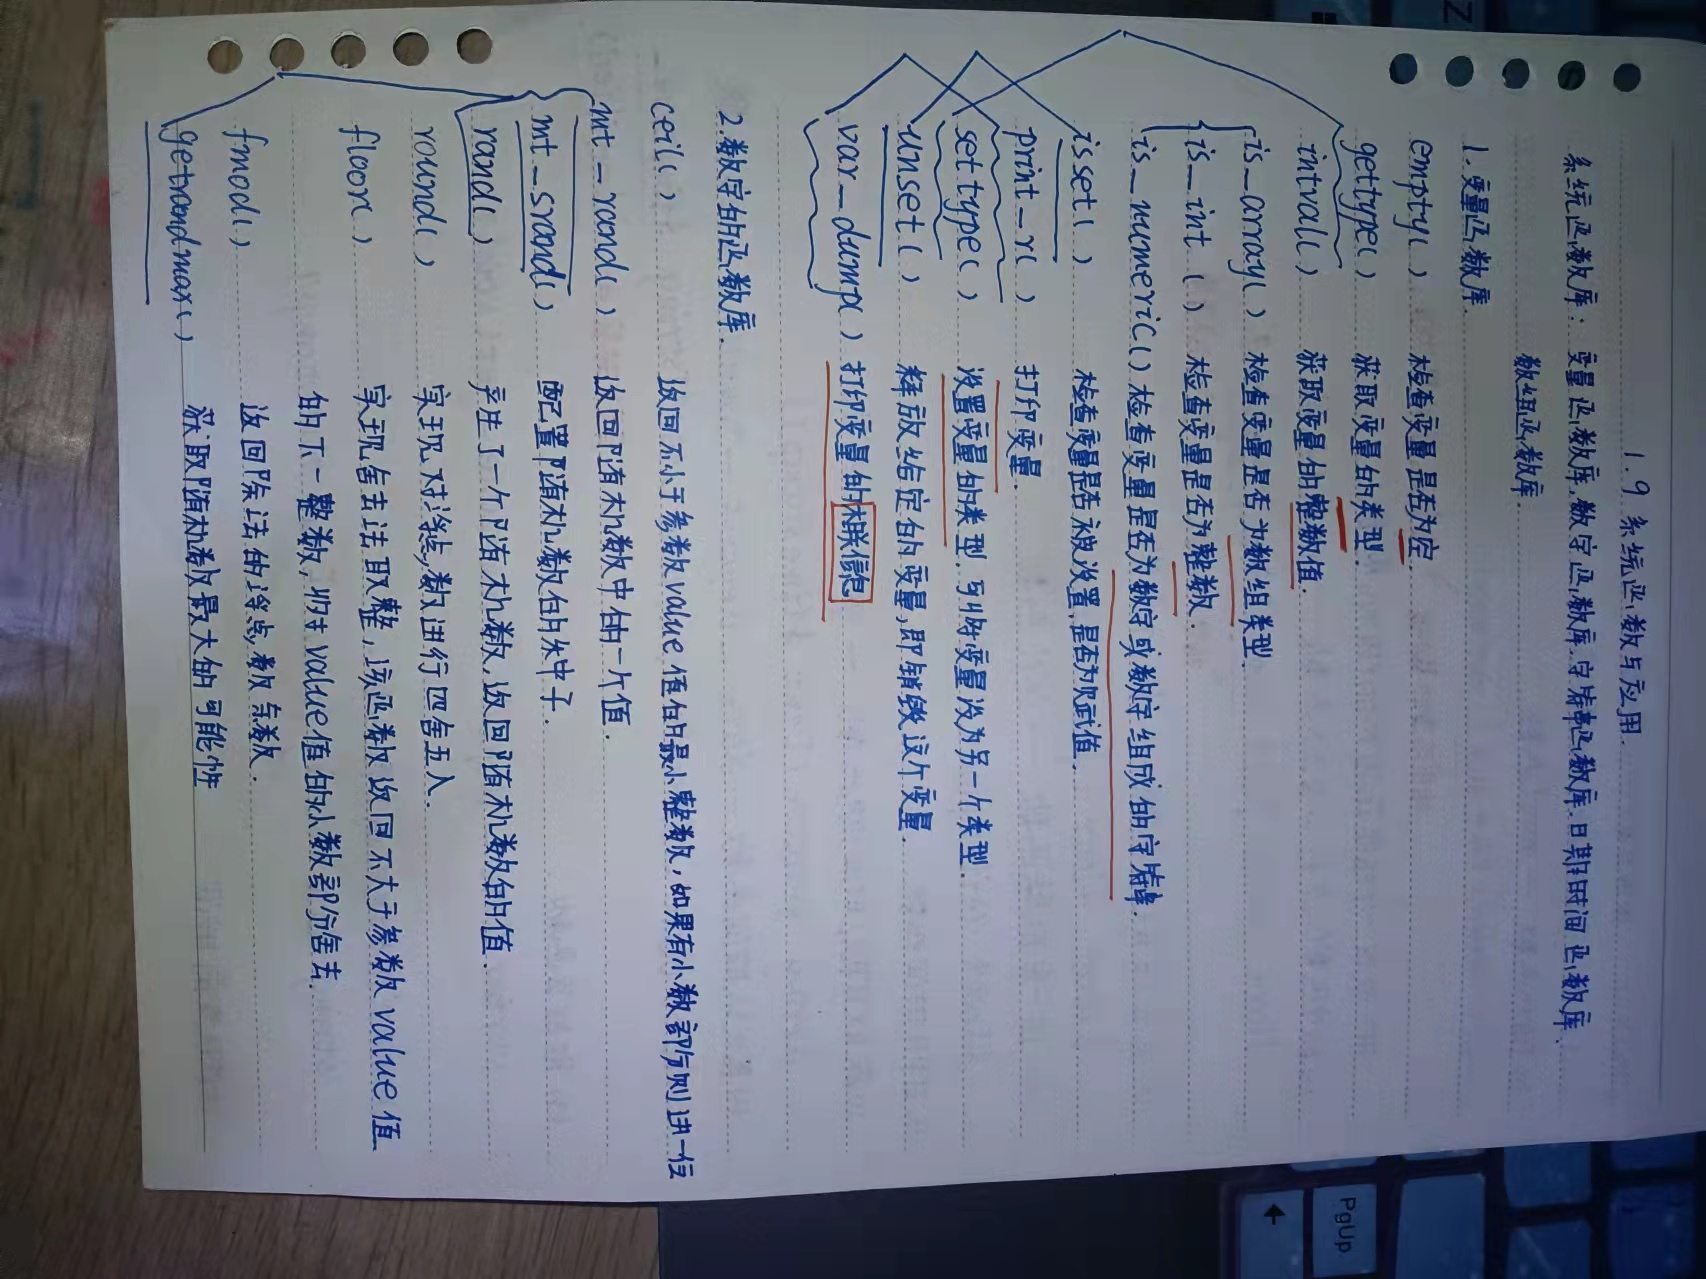 1.9 系统函数与应用.
系统函数库: 变量函数库.数字函数库.字符串函数库.日期时间函数库.
数组函数库.
1.变量函数库.
empty() 检查变量是否为空
gettype() 获取变量的类型.
intval() 获取变量的整数值.
is_array() 检查变量是否为数组类型.
is_int() 检查变量是否为整数.
is_numeric() 检查变量是否为数字或数字组成的字符串.
isset() 检查变量是否被设置,是否为赋值.
print_r() 打印变量.
settype() 设置变量的类型.可将变量设为另一个类型.
unset() 释放给定的变量,即销毁这个变量.
var_dump() 打印变量的相关信息
2.数字的函数库.
ceil() 返回不小于参数value值的最小整数,如果有小数部分则进一位
mt_rand() 返回随机数中的一个值.
mt_srand() 配置随机数的种子.
rand() 产生了一个随机数,返回随机数的值.
round() 实现对浮点数进行四舍五入.
floor() 实现舍去法取整,该函数返回不大于参数value值
的下一整数,将value值的小数部分舍去.
fmod() 返回除法的浮点数余数.
getrandmax() 获取随机数最大的可能性
PgUp
Z